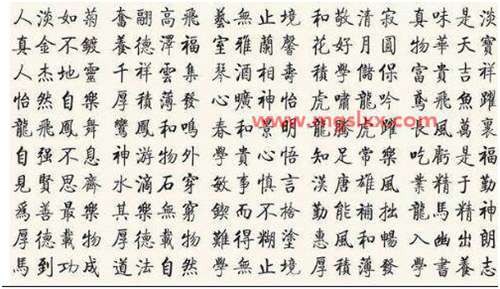 人淡如菊 奮翮高飛 藝無止境 和敬清寂 真味是淡
真金不鍍 養德澤福 室雅蘭馨 花好月圓 物華天寶
人杰地靈 千祥雲集 琴酒相壽 學儲保 富貴吉祥
怡然自樂 厚積薄發 心曠神怡 虎嘯龍吟 鳶飛魚躍
龍飛鳳舞 鸞鳳和鳴 春和景明 龍虎 風萬裏
www.moslxx.com
自强不息 神游物外 和貴心悟 知足常樂 吃虧是福
見賢思齊 水滴石穿 學敏事慎言 漢唐雄風 業精于勤
爲善最樂 其樂無窮 鍥而不捨 勤能補拙 龍馬精神
厚德載物 厚德載物 難得糊塗 惠風和暢 入幽出朗
馬到功成 道法自然 學無止境 厚積薄發 學書養志